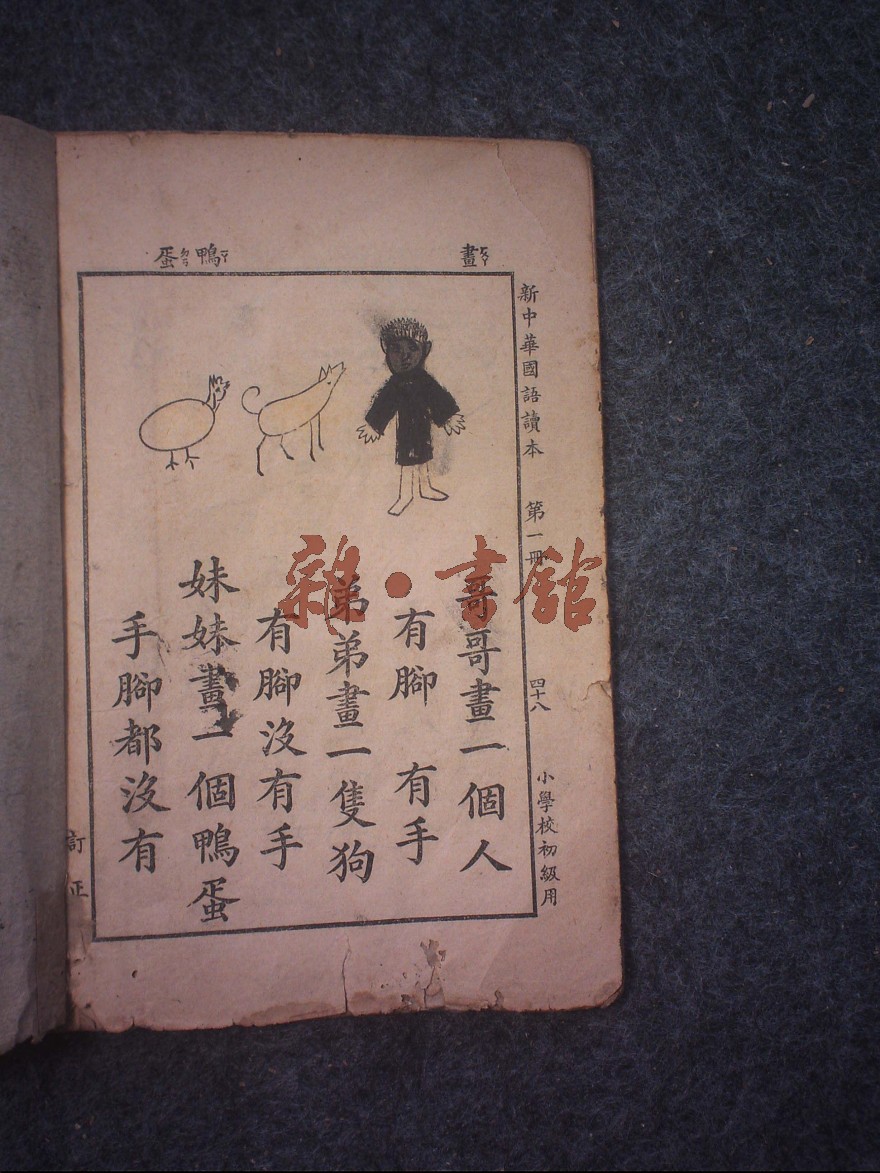 畫ㄏㄨㄚ
鴨ㄧㄚ 蛋ㄉㄢ
新中華國語讀本 第一冊 四十八 小學校初級用
哥哥畫一個人
有腳 有手
弟弟畫一隻狗
有腳沒有手
妹妹畫一個鴨蛋
手腳都沒有
訂正
雜·書館